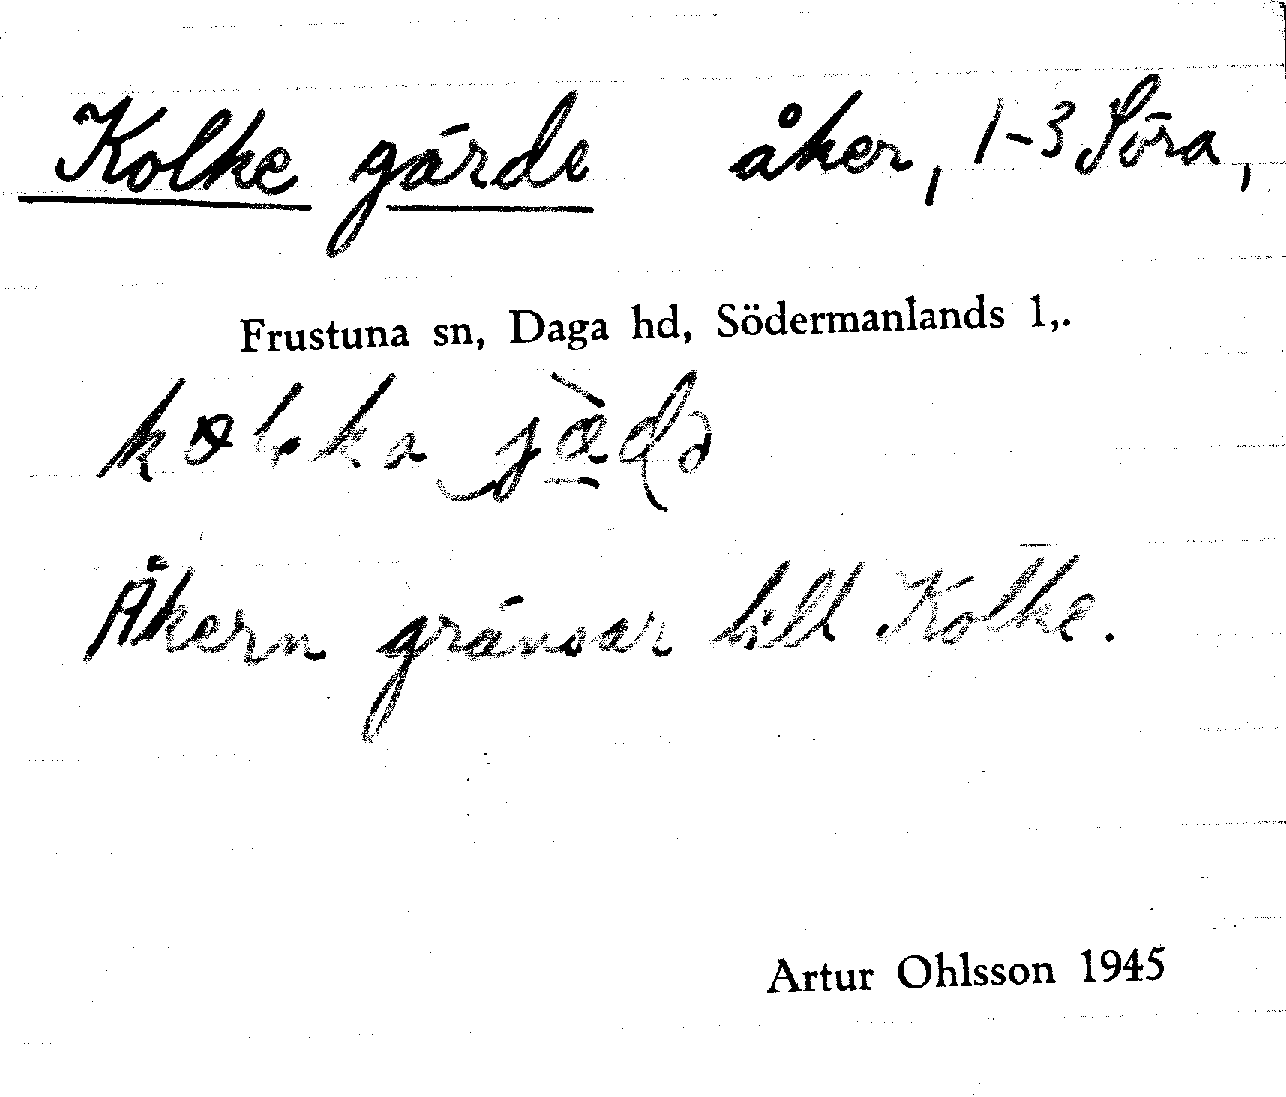 Kolke gärde åker, 1-3 Söra,
Frustuna sn, Daga hd, Södermanlands l,.
Åkern gränsar till Kolke.
Artur Ohlsson 1945